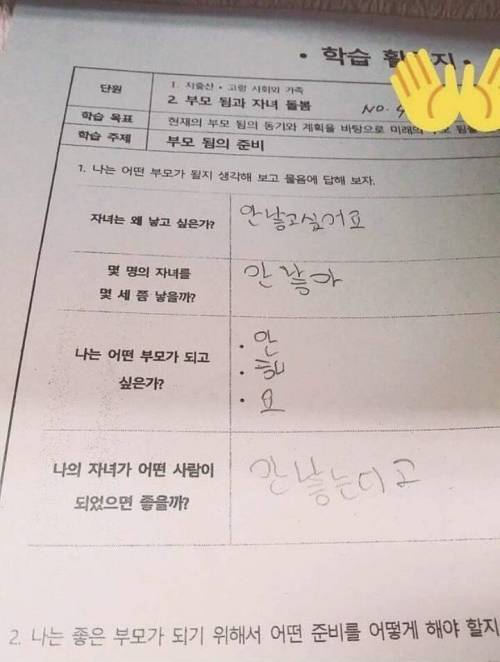 • 학습 활 지 •
단원
1. 저출산 • 고령 사회와 가족
2. 부모 됨과 자녀 돌봄
NO.
학습 목표
현재의 부모 됨의 동기와 계획을 바탕으로 미래의
학습 주제
부모 됨의 준비
1. 나는 어떤 부모가 될지 생각해 보고 물음에 답해 보자.
자녀는 왜 낳고 싶은가?
안낳고싶어요
몇 명의 자녀를
몇 세 쯤 낳을까?
안 낳아
나는 어떤 부모가 되고
싶은가?
• 안
• 해
• 요
나의 자녀가 어떤 사람이
되었으면 좋을까?
안 낳는다고
2. 나는 좋은 부모가 되기 위해서 어떤 준비를 어떻게 해야 할지